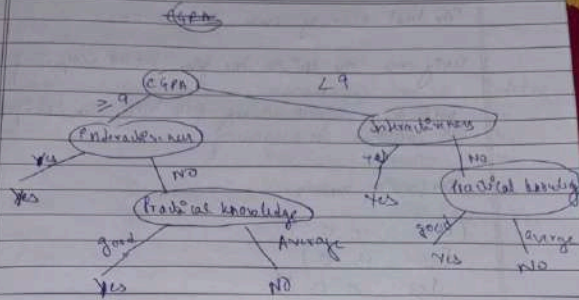 CGPA
CGPA
≥ 9
< 9
Interactiveness
Interactiveness
Yes
NO
Yes
NO
Yes
Practical knowledge
Yes
Practical knowledge
good
Average
good
average
Yes
NO
Yes
NO